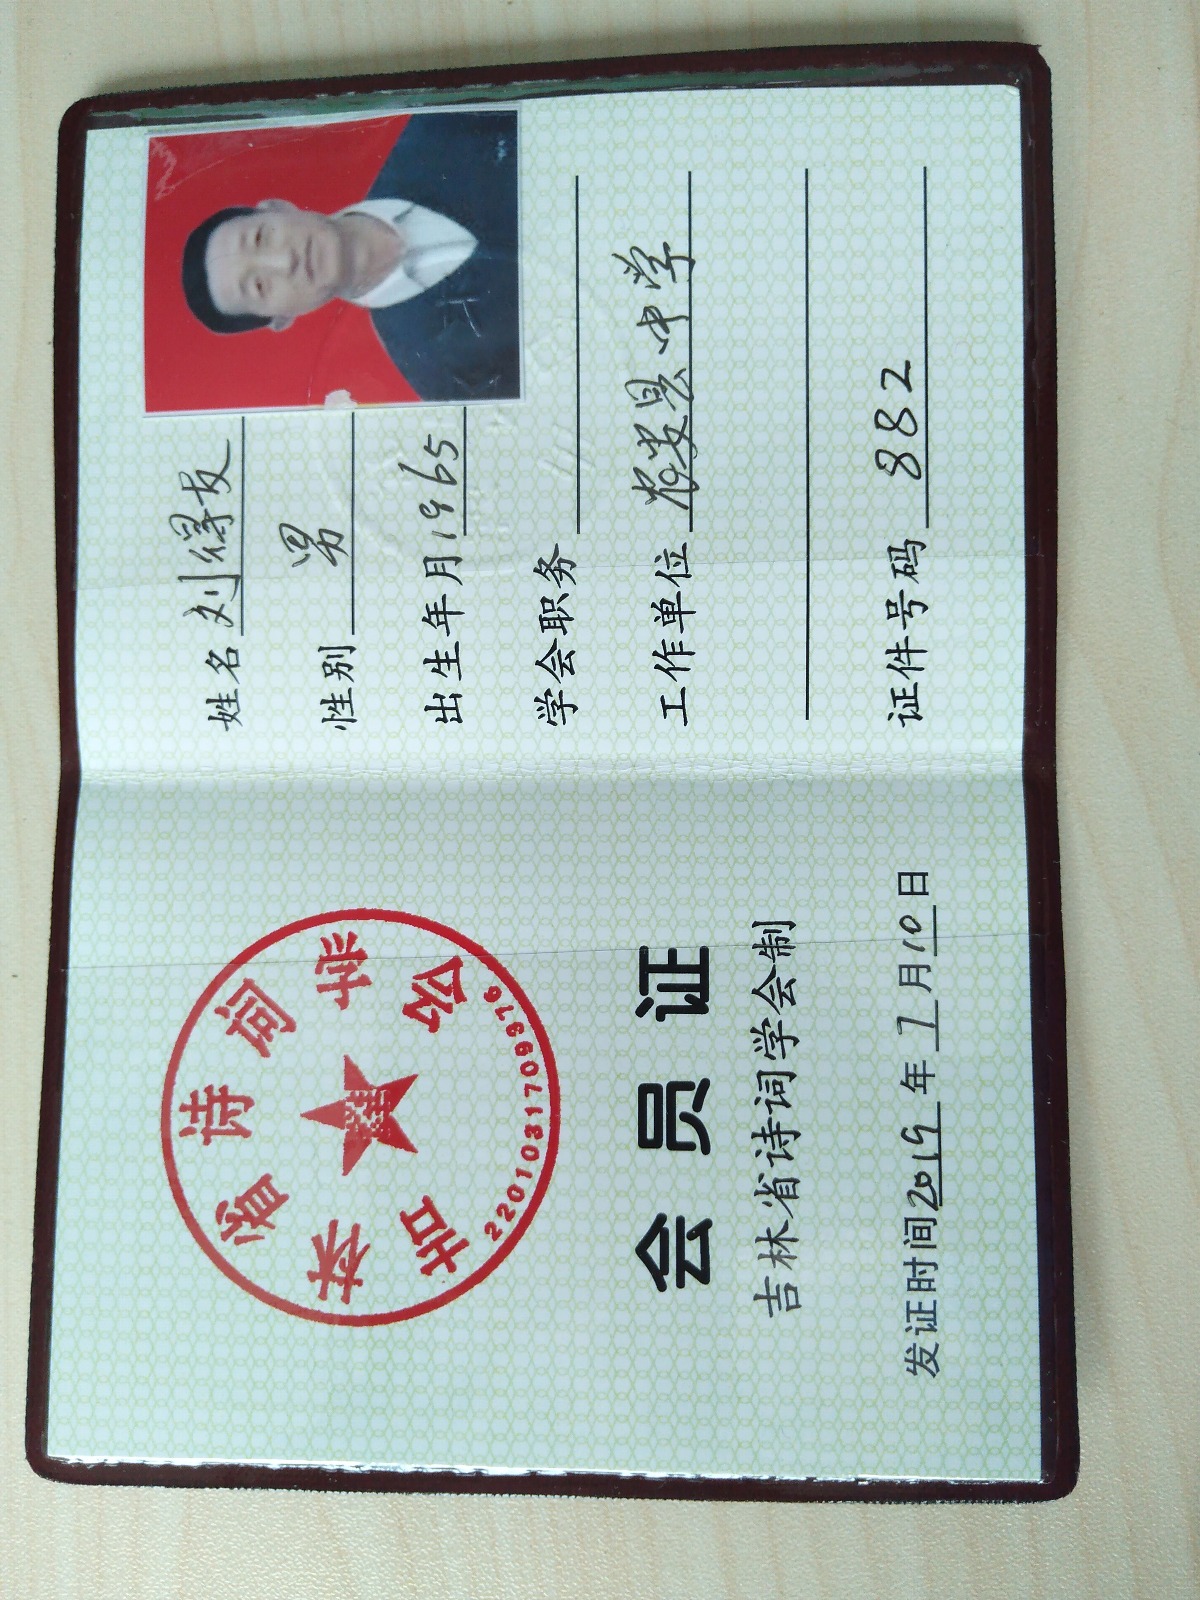 吉林省诗词学会
2201031709976
会员证
吉林省诗词学会制
发证时间2019年7月10日
姓名 刘得友
性别 男
出生年月1965
学会职务
工作单位 农安县中学
证件号码 882